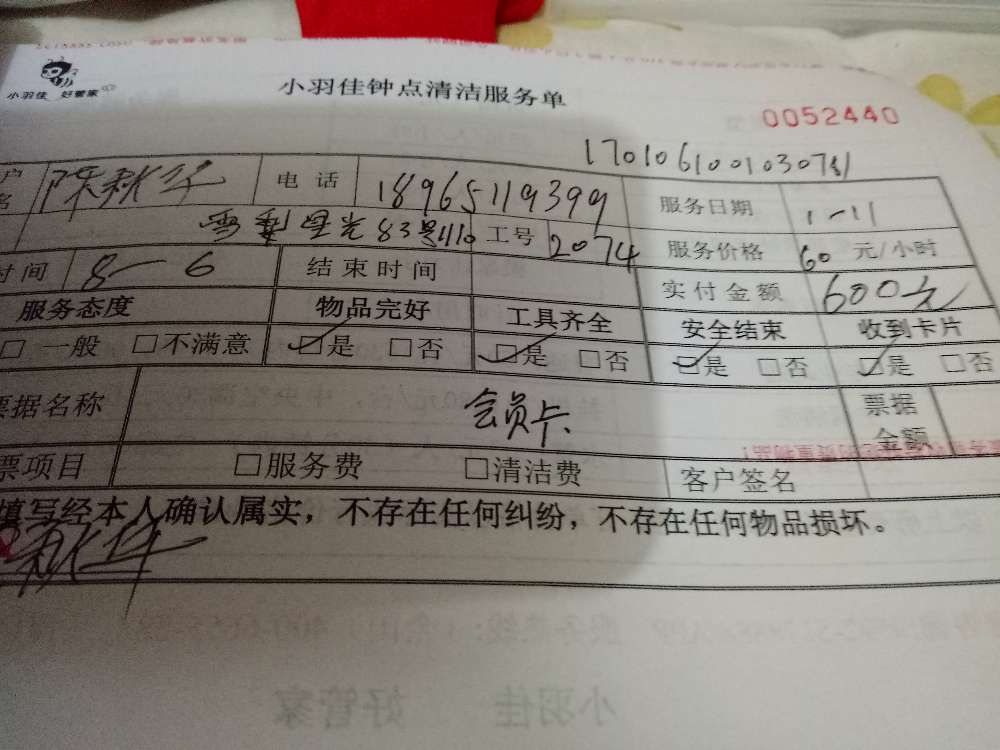 小羽佳 好管家
小羽佳钟点清洁服务单
0052440
1701061001030781
户名 陈秋华 电话 18965119399 服务日期 1-11
83号410 工号 2074 服务价格 60 元/小时
时间 8—6 结束时间 实付金额 600元
服务态度 物品完好 工具齐全 安全结束 收到卡片
□一般 □不满意 ☑是 □否 ☑是 □否 ☑是 □否 ☑是 □否
票据名称 会员卡 票据金额
票项目 □服务费 □清洁费 客户签名
填写经本人确认属实，不存在任何纠纷，不存在任何物品损坏。
秋华
小羽佳 好管家